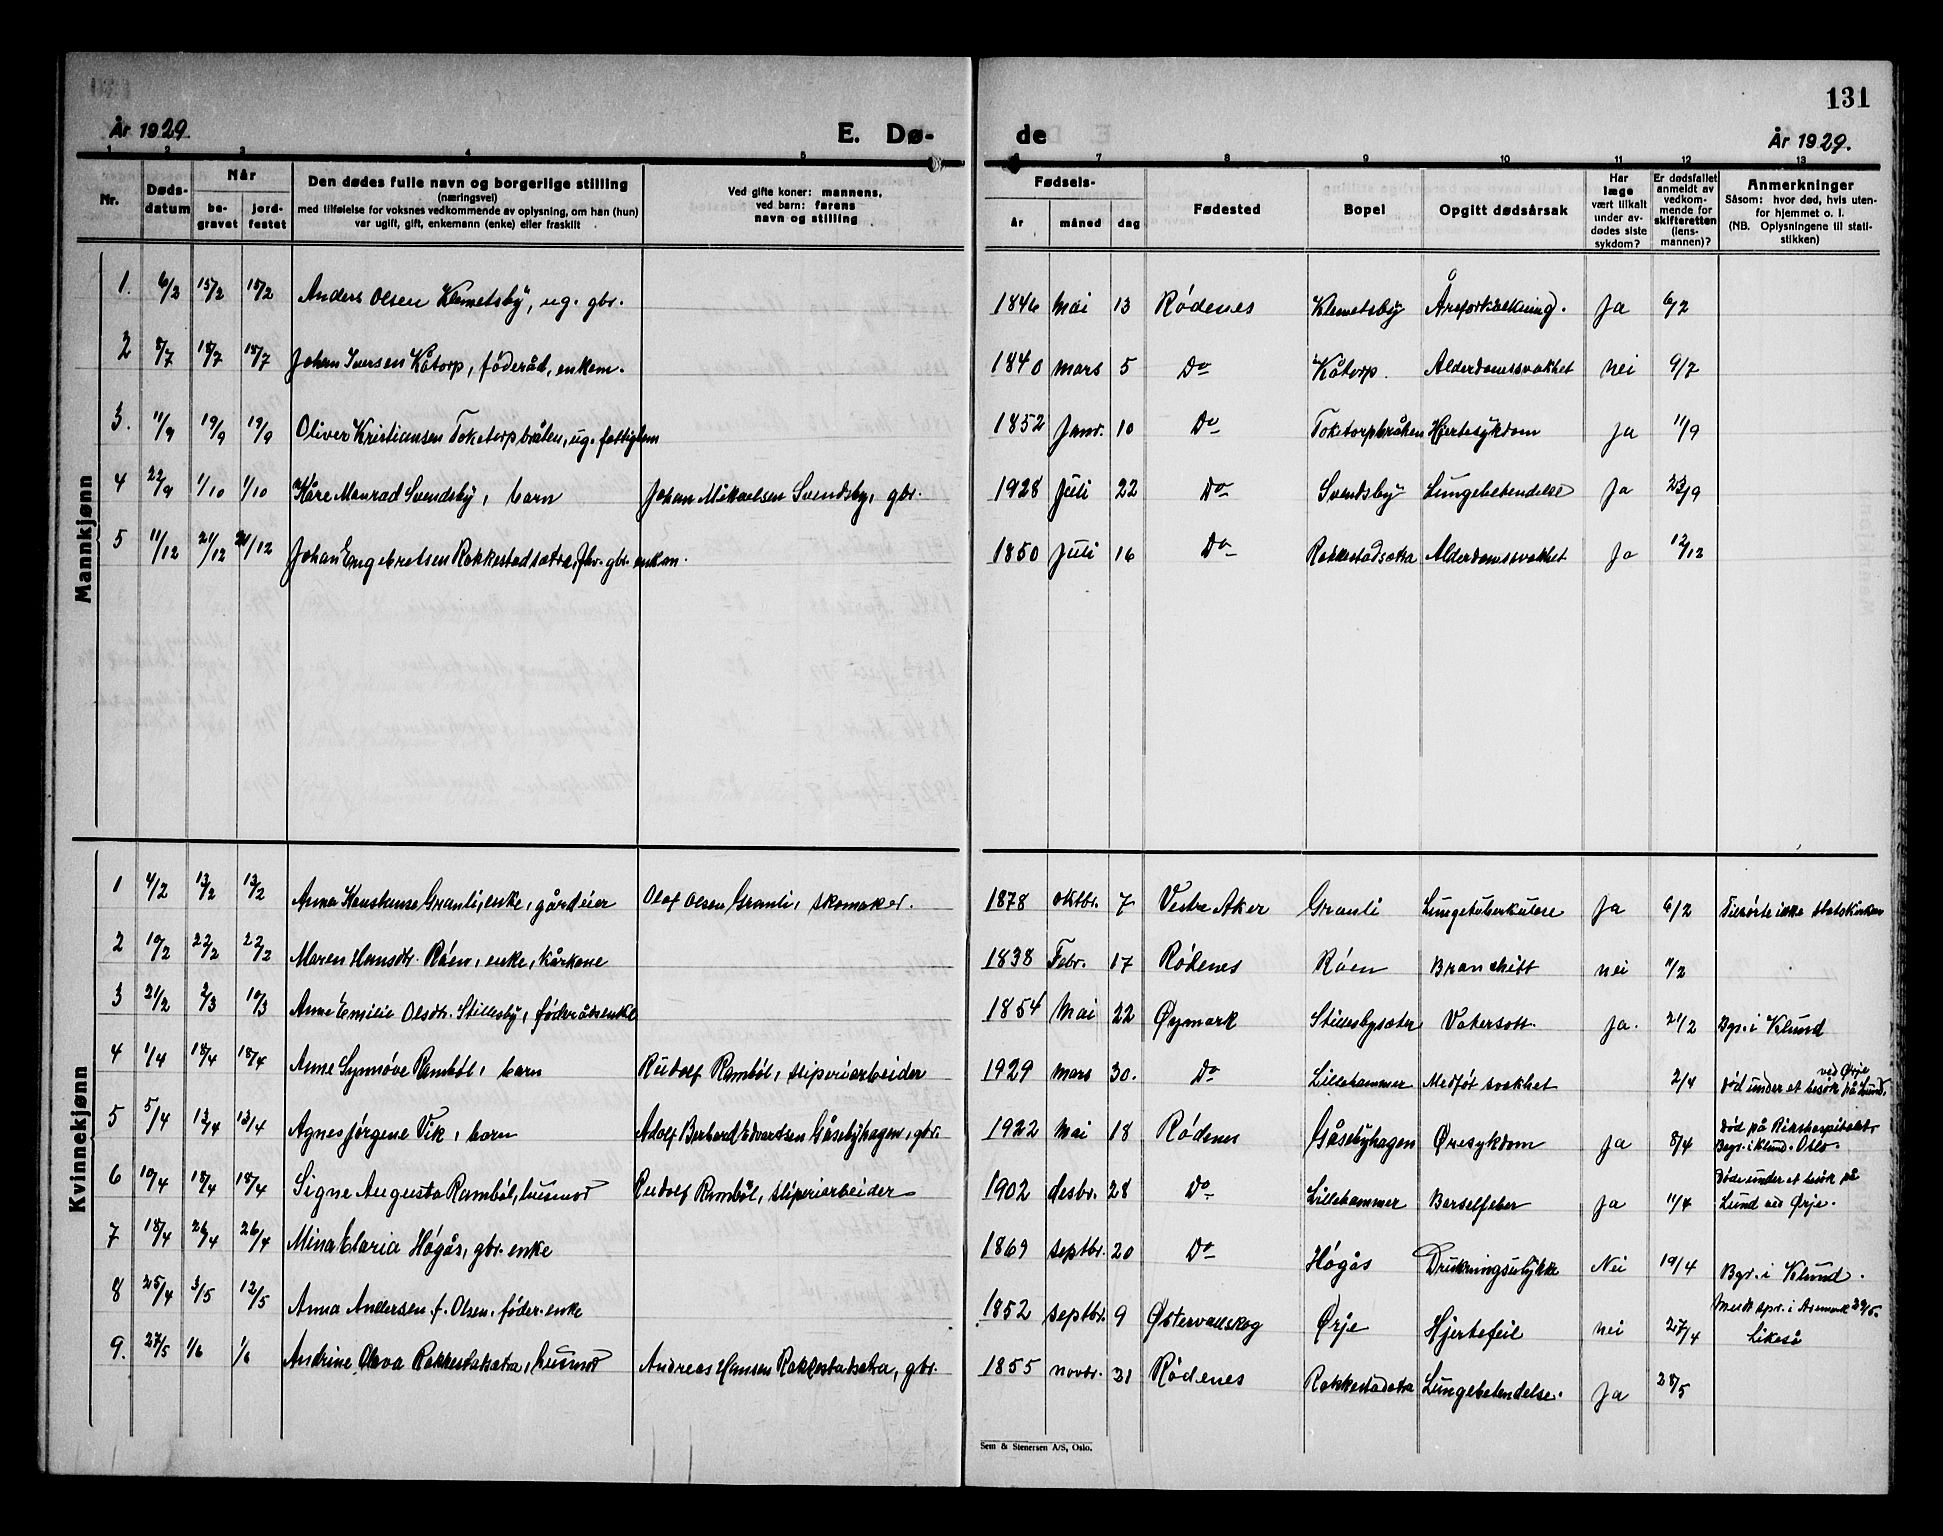 131
År 1929. E. Dø- de År 1929.
1 2 3 4 5 6 7 8 9 10 11 12 13
Nr. Døds-datum Når be-gravet jord-festet Den dødes fulle navn og borgerlige stilling (næringsvei) med tilføielse for voksnes vedkommende av oplysning, om han (hun) var ugift, gift, enkemann (enke) eller fraskilt Ved gifte koner: mannens, ved barn: farens navn og stilling Fødsels- år måned dag Fødested Bopel Opgitt dødsårsak Har læge vært tilkalt under av-dødes siste sykdom? Er dødsfallet anmeldt av vedkom-mende for skifteretten (lens-mannen)? Anmerkninger Såsom: hvor død, hvis uten-for hjemmet o. l. (NB. Oplysningene til stati-stikken)
Mannkjønn
1. 6/2 15/2 15/2 Anders Olsen Klemetsby, ug. gbr. 1846 Mai 13 Rødenes Klemetsby Åreforkalkning. Ja 6/2
2 8/7 18/7 18/7 Johan Iversen Kåtorp, føderåd, enkem. 1840 mars 5 Do Kåtorp. Alderdomssvakhet nei 9/7
3. 11/9 19/9 19/9 Oliver Kristiansen Toketorpbråten, ug. fattiglem 1852 Janr. 10 Do Toketorpbråten Hjertesykdom ja 11/9
4 22/9 1/10 1/10 Kåre Manrad Svendsby, barn Johan Mikaelsen Svendsby, gbr. 1928 Juli 22 Do Svendsby Lungebetendelse Ja 23/9
5 11/12 21/12 21/12 Johan Engebretsen Rakkestadsætra, fhv. gbr. enkem. 1850 Juli 16 Do Rakkestadsætra Alderdomssvakhet Ja 12/12
Kvinnekjønn
1 4/2 13/2 13/2 Anna Granli, enke, gårdeier Olof Olsen Granli, skomaker. 1878 oktbr. 7 Vestre Aker Granli Lungetuberkulose Ja 6/2 Tilhørte ikke statskirken
2 10/2 22/2 22/2 Maren Hansdtr. Røen, enke, kårkone 1838 Febr. 17 Rødenes Røen Bronchitt nei 11/2
3 21/2 2/3 10/3 Anne Emilie Olsdtr. Stillesby, føderådsenke 1854 Mai 22 Øymark Stillesbysæter Vatersott. ja. 21/2 Bgr. i Klund
4 1/4 18/4 18/4 Anne Synnøve Rambøl, barn Rudolf Rambøl, sliperiarbeider 1929 mars 30. Do Lillehammer Medfør svakhet 2/4 død under et besøk på Lund ved Ørje
5 5/4 13/4 13/4 Agnes Jørgine Vik, barn Adolf Berhard Edvardsen Gåsebyhagen, gbr. 1922 Mai 18 Rødenes Gåsebyhagen Øresykdom ja 8/4 død på Rikshospitalet, Oslo. Begr. i Klund.
6 10/4 18/4 18/4 Signe Augusta Rambøl, husmor Rudolf Rambøl, sliperiarbeider 1902 desbr. 28 Do Lillehammer Barselfeber ja 11/4 Døde under et besøk på Lund ved Ørje.
7 18/4 26/4 26/4 Mina Høgås, gbr. enke 1869 septbr. 20 Do Høgås Drukningsulykke Nei 19/4 Bgr. i Klund.
8 25/4 3/5 12/5 Anna Andersen f. Olsen. føder. enke 1852 septbr. 9 Østervallskog Ørje Hjertefeil nei 27/4 i Aremark
9. 27/5 1/6 1/6 Andrine Rakkestadsætra, husmor Andreas Hansen Rakkestadsætra, gbr. 1855 novbr. 21 Rødenes Rakkestadsætra Lungebetendelse. Ja 28/5 Likeså
Sem & Stenersen A/S, Oslo.